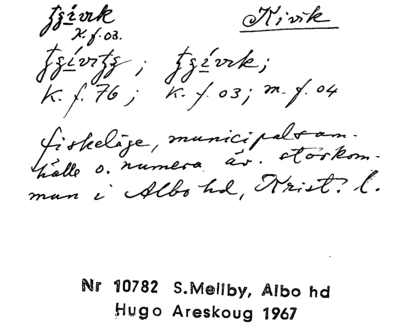 Kivik
k. f. 03.
k. f. 76; k. f. 03; m. f. 04
fiskeläge, municipalsam-
hälle o. numera är. storkom-
mun i Albo hd, Krist. l.
Nr 10782 S.Mellby, Albo hd
Hugo Areskoug 1967